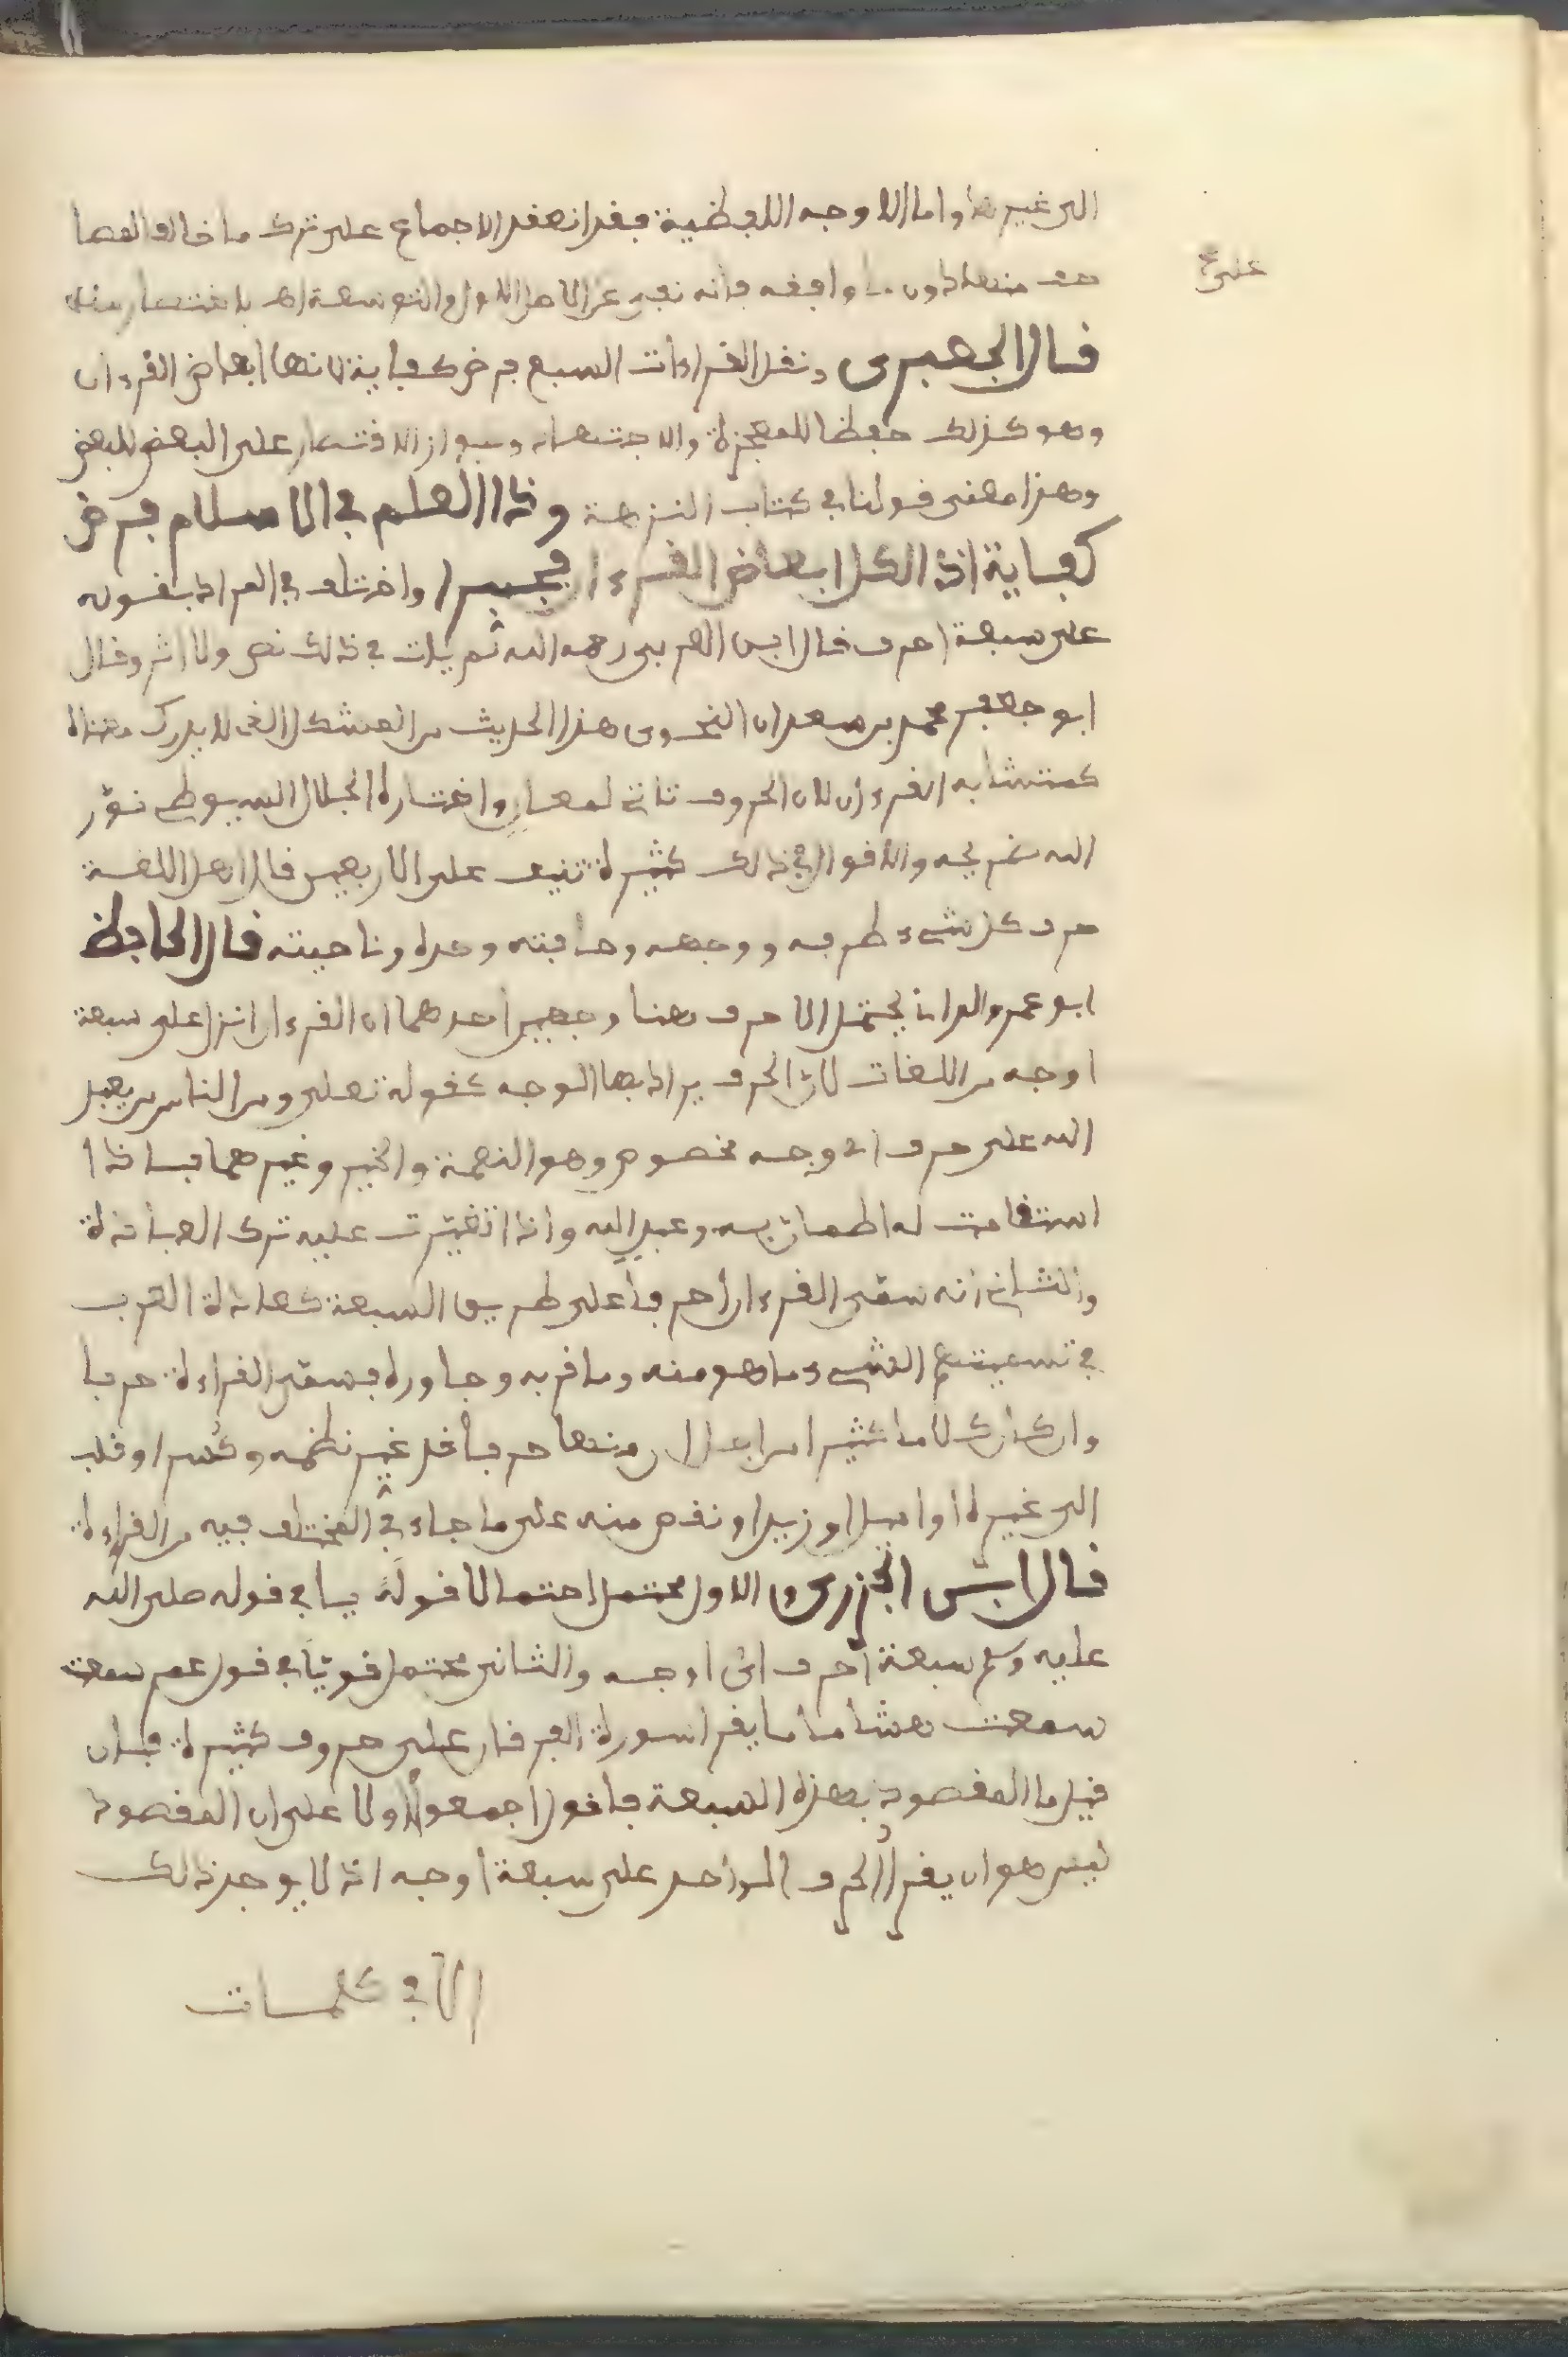 الى غيرها واما الاوجه اللفظية فقد انعقد الاجماع على ترك ما خالف المصا
حف منها دون ما وافقه فانه نفي عن الاصل الاول والتوسعة اهـ باختصار منه
على
قال الجعبرى ونقل القراءات السبع فرض كفاية لانها ابعاض القرءان
وهو كذلك حفظا للمعجزة والاجتهاد وجواز الاقتصار على البعض للبعض
وهذا معنى قولنا في كتاب النزهة وذا العلم في الاسلام فرض
كفاية اذ الكل ابعاض القرءان واختلف في المراد بقوله
على سبعة احرف قال ابن العربى رحمه الله لم يات في ذلك نص ولا اثر وقال
ابو جعفر محمد بن سعدان النحوى هذا الحديث من المشكل الذى لا يدرك معناه
كمتشابه القرءان لان الحروف تاتى لمعان واختاره الجلال السيوطى نور
الله ضريحه والاقوال في ذلك كثيرة تنيف على الاربعين قال اهل اللغة
حرف كل شىء طرفه ووجهه وحافته وحده وناحيته قال الحافظ
ابو عمرو الدانى يحتمل الاحرف هنا وجهين احدهما ان القرءان انزل على سبعة
اوجه من اللغات لان الحرف يراد بها الوجه كقوله تعلى ومن الناس من يعبد
الله على حرف اى وجه مخصوص وهو النعمة والخير وغيرهما فاذا
استقامت له اطمان به وعبد الله واذا تغيرت عليه ترك العبادة
والثانى انه سمى القرءان احرفا على طريق السبعة كعادة العرب
في تسميتهم الشىء ما هو منه وما قربه وجاوره فسمى القراءة حرفا
وان كان كلاما كثيرا من اجل ان منها حرفا قد غير نظمه وكسر او قلب
الى غيره او اميل او زيد او نقص منه على ما جاء في المختلف فيه من القراءة
قال ابن الجزرى الاول محتمل احتمالا قويا في قوله صلى الله
عليه وسلم سبعة احرف اى اوجه والثانى محتمل قويا في قول عمر سمعت
سمعت هشاما يقرا سورة الفرقان على حروف كثيرة فان
قيل ما المقصود بهذه السبعة فاقول اجمعوا اولا على ان المقصود
ليس هو ان يقرا الحرف الواحد على سبعة اوجه اذ لا يوجد ذلك
الا في كلمات